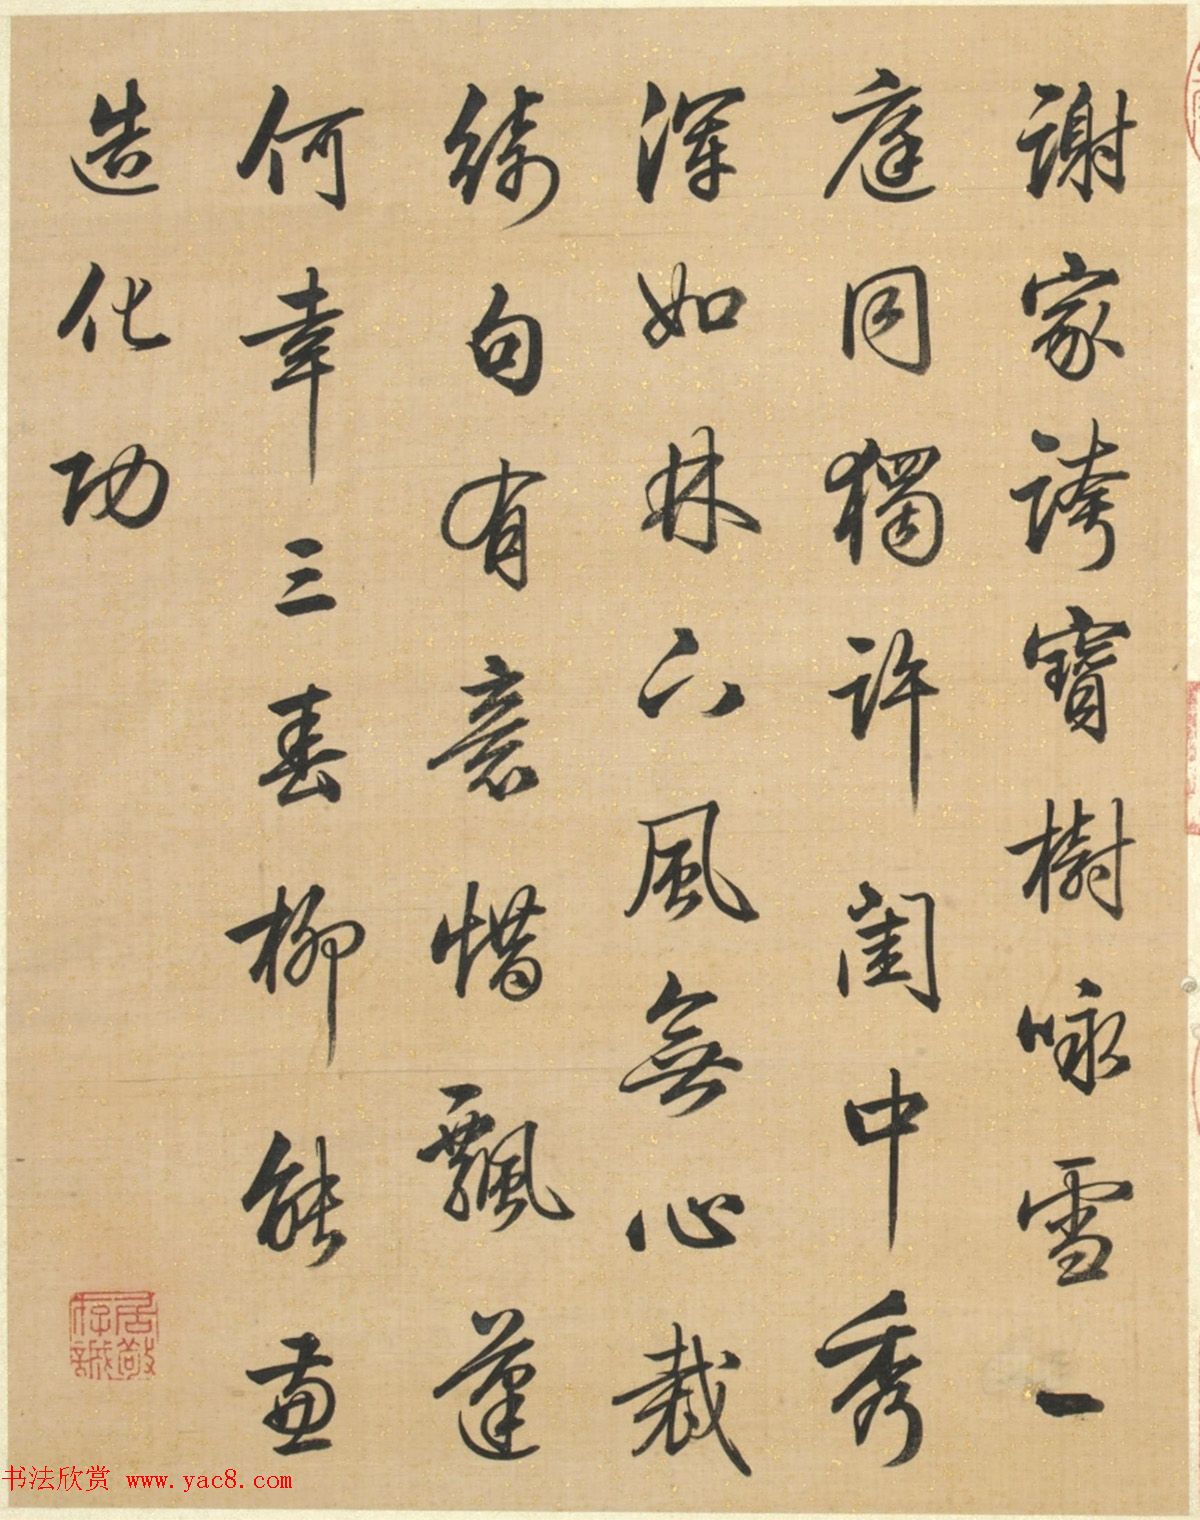 謝家誇寶樹咏雪一
庭同獨許閨中秀
渾如林下風無心裁
綺句有意惜飄蓬
何幸三春柳能畫
造化功
居敬存誠
书法欣赏 www.yac8.com